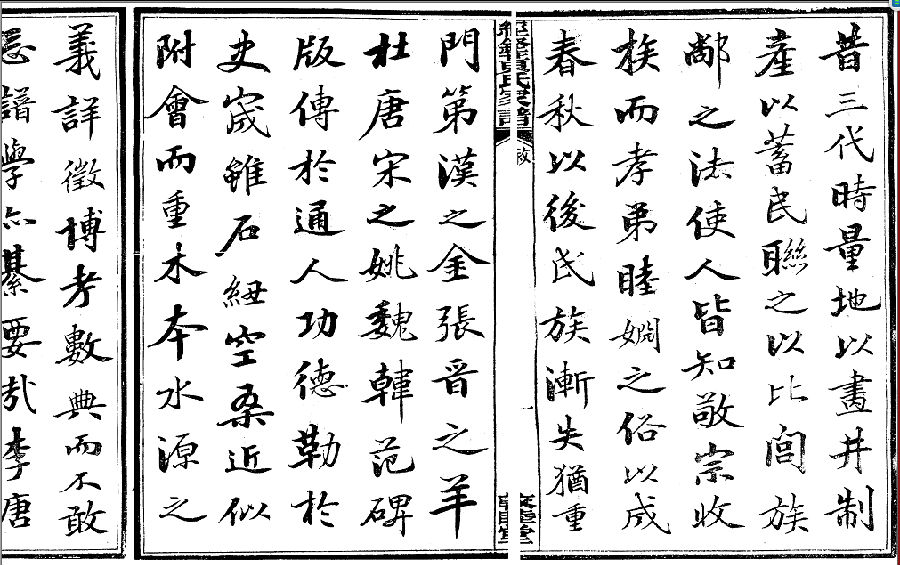 昔三代時量地以畫井制
產以蓄民聯之以比閭族
鄰之法使人皆知敬宗收
族而孝弟睦婣之俗以成
春秋以後氏族漸失猶重
氏家譜
門第漢之金張晉之羊
杜唐宋之姚魏韓范碑
版傳於通人功德勒於
史宬雖石紐空桑近似
附會而重木本水源之
義詳徵博考數典而不敢
忘譜學亦綦要哉李唐